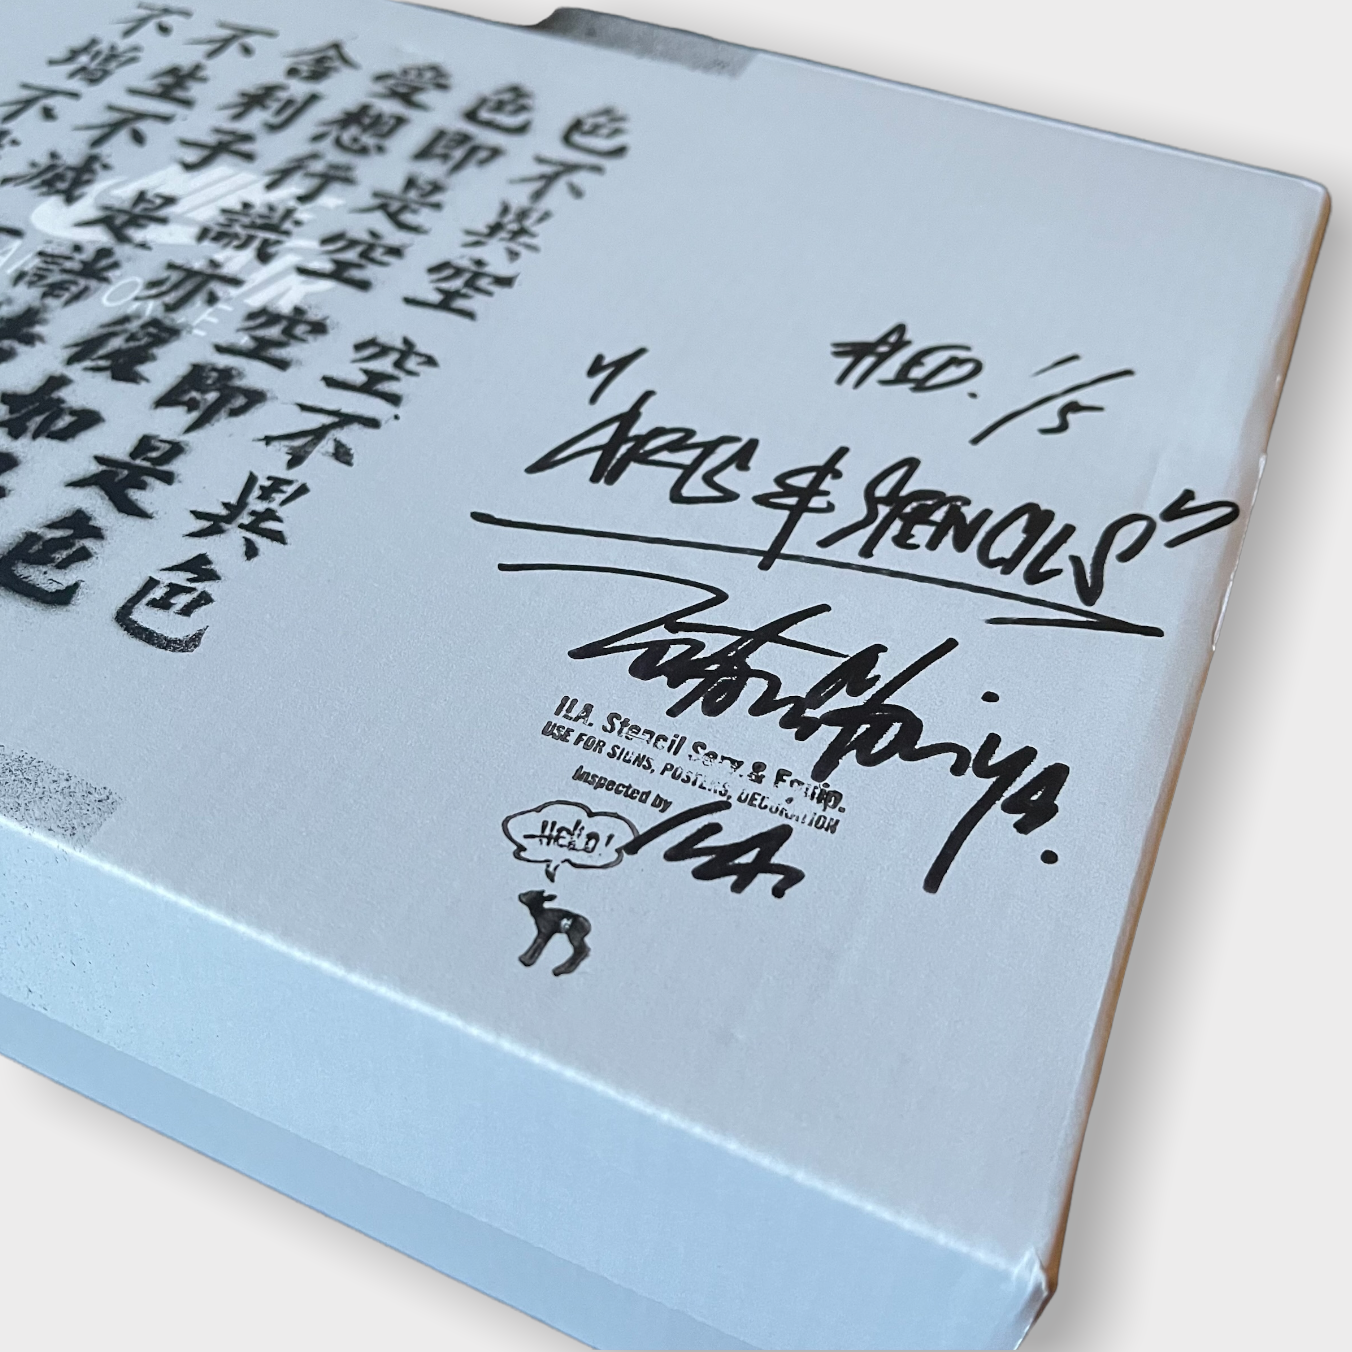 色不異空空不異色
色即是空空即是色
受想行識亦復如是
舍利子是諸
不生不滅
不增不
#ED. 1/5
"ARTS & STENCILS"
ILA. Stencil Serv. & Equip.
USE FOR SIGNS, POSTERS, DECORATION
Inspected by ILA.
HELLO!